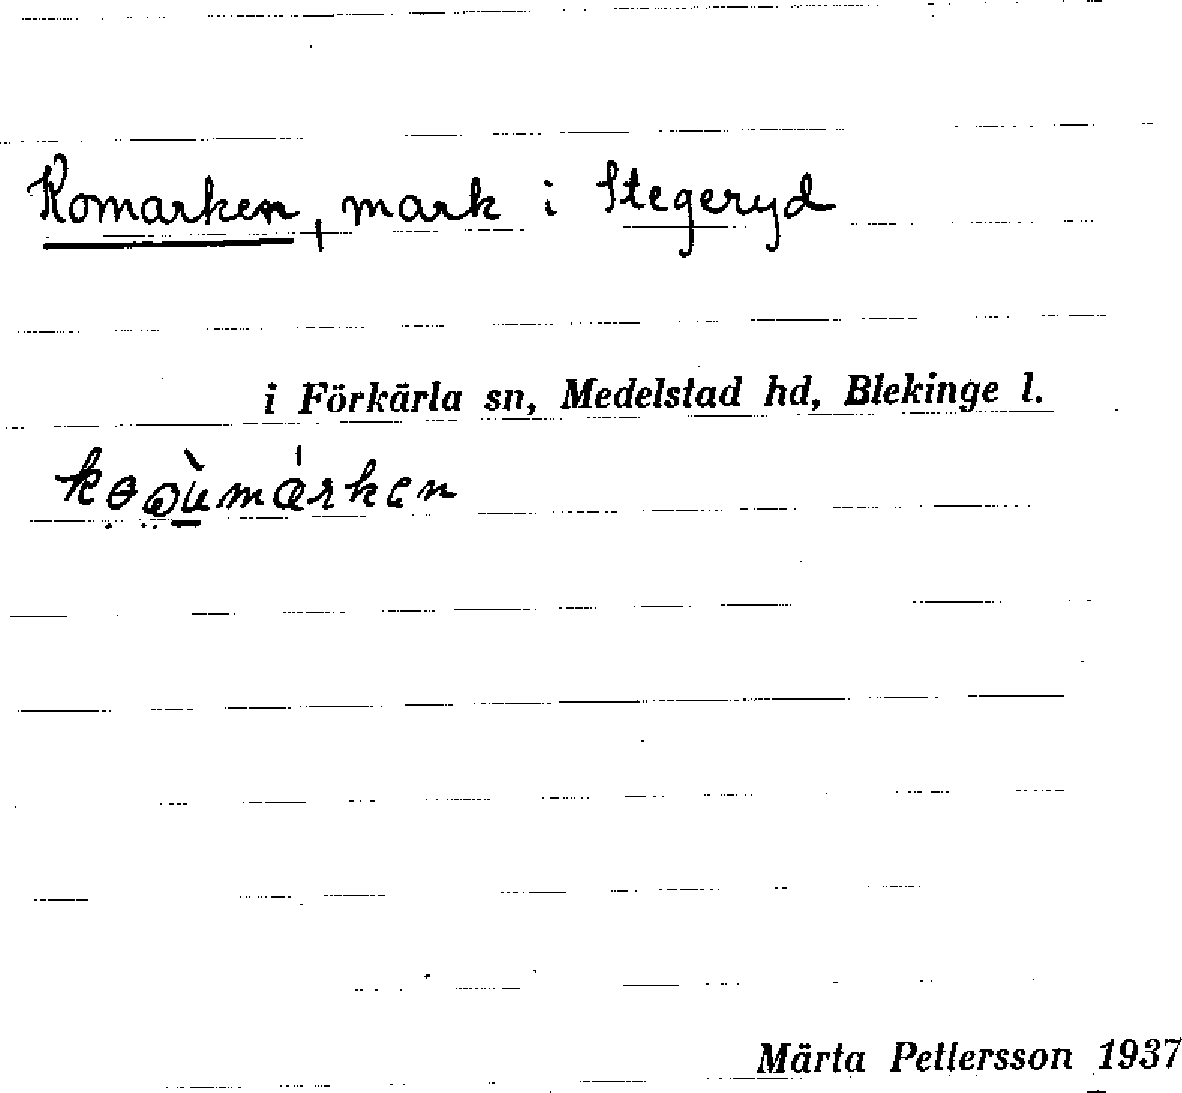 Komarken, mark i Stegeryd
i Förkärla sn, Medelstad hd, Blekinge l.
Märta Pettersson 1937